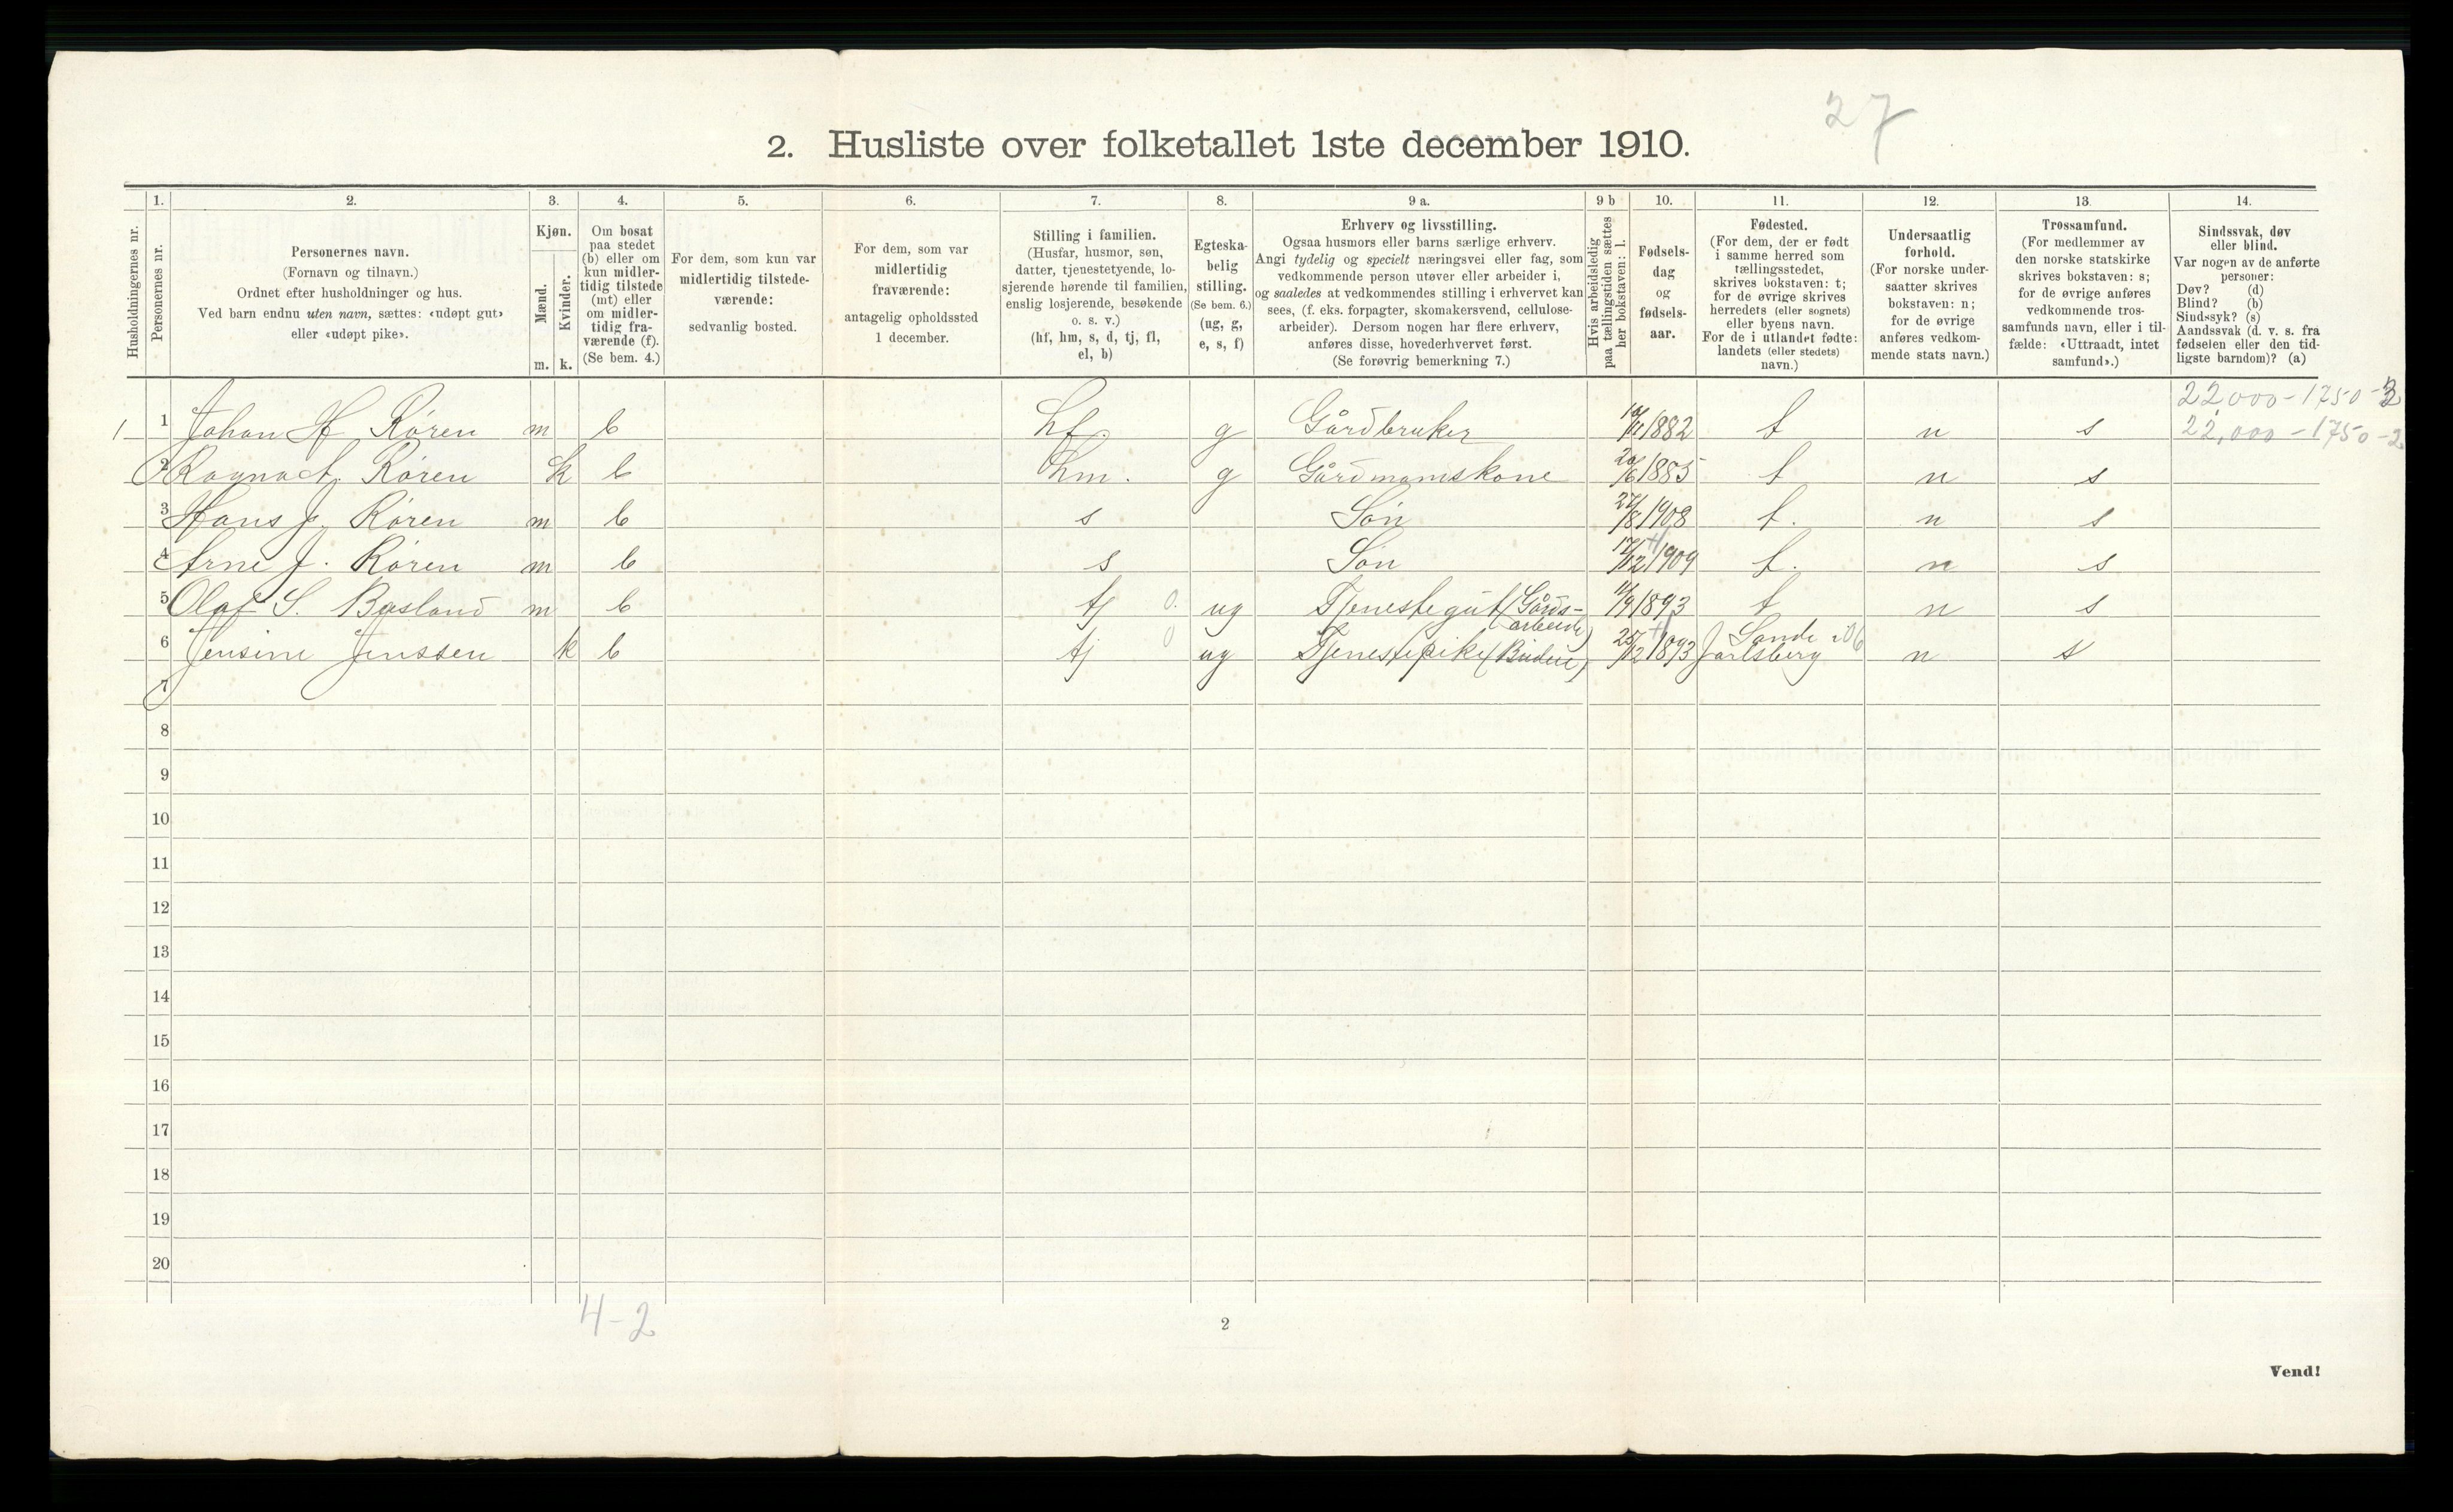 27
2. Husliste over folketallet 1ste december 1910.
Husholdningernes nr.
1.
Personernes nr.
2.
Personernes navn.
(Fornavn og tilnavn.)
Ordnet efter husholdninger og hus.
Ved barn endnu uten navn, sættes: «udøpt gut»
eller «udøpt pike».
3.
Kjøn.
Mænd.
Kvinder.
m. k.
4.
Om bosat
paa stedet
(b) eller om
kun midler-
tidig tilstede
(mt) eller
om midler-
tidig fra-
værende (f).
(Se bem. 4.)
5.
For dem, som kun var
midlertidig tilstede-
værende:
sedvanlig bosted.
6.
For dem, som var
midlertidig
fraværende:
antagelig opholdssted
1 december.
7.
Stilling i familien.
(Husfar, husmor, søn,
datter, tjenestetyende, lo-
sjerende hørende til familien,
enslig losjerende, besøkende
o. s. v.)
(hf, hm, s, d, tj, fl,
el, b)
8.
Egteska-
belig
stilling.
(Se bem. 6.)
(ug, g,
e, s, f)
9 a.
Erhverv og livsstilling.
Ogsaa husmors eller barns særlige erhverv.
Angi tydelig og specielt næringsvei eller fag, som
vedkommende person utøver eller arbeider i,
og saaledes at vedkommendes stilling i erhvervet kan
sees, (f. eks. forpagter, skomakersvend, cellulose-
arbeider). Dersom nogen har flere erhverv,
anføres disse, hovederhvervet først.
(Se forøvrig bemerkning 7.)
9 b
Hvis arbeidsledig
paa tællingstiden sættes
her bokstaven: l.
10.
Fødsels-
dag
og
fødsels-
aar.
11.
Fødested.
(For dem, der er født
i samme herred som
tællingsstedet,
skrives bokstaven: t;
for de øvrige skrives
herredets (eller sognets)
eller byens navn.
For de i utlandet fødte:
landets (eller stedets)
navn.)
12.
Undersaatlig
forhold.
(For norske under-
saatter skrives
bokstaven: n;
for de øvrige
anføres vedkom-
mende stats navn.)
13.
Trossamfund.
(For medlemmer av
den norske statskirke
skrives bokstaven: s;
for de øvrige anføres
vedkommende tros-
samfunds navn, eller i til-
fælde: «Uttraadt, intet
samfund».)
14.
Sindssvak, døv
eller blind.
Var nogen av de anførte
personer:
Døv? (d)
Blind? (b)
Sindssyk? (s)
Aandssvak (d. v. s. fra
fødselen eller den tid-
ligste barndom)? (a)
22000-1750-2
1 1 Johan H Røren m b hf. g Gårdbruker 1882 t n s 22,000-1750-2
2 Røren k b hm. g Gårdmannskone 20/6 1885 t n s
3 Hans J. Røren m b s Søn 27/8 1908 t. n s
4 Arne J. Røren m b s Søn 17/12 1909 t. n s
5 Olaf S. Basland m b tj 0. ug Tjenestegut (Gårds-
arbeide) 1893 t n s
6 Jensine Jenssen k b tj 0 ug Tjenestepike (Budeie) 25/12 1893 Sande
Jarlsberg n s
7
8
9
10
11
12
13
14
15
16
17
18
19
20
4-2
2
Vend!